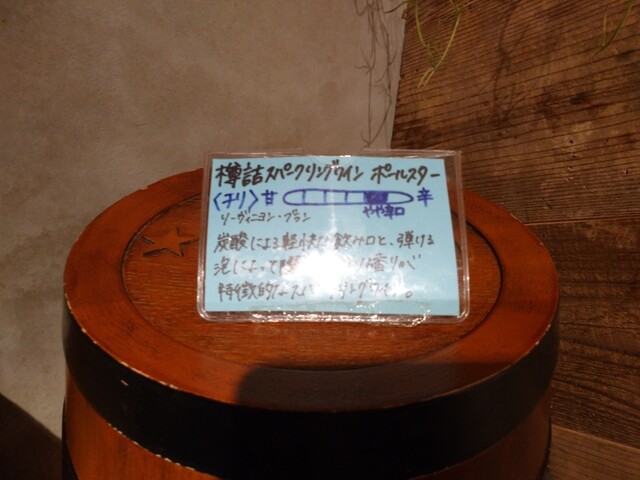 樽詰スパークリングワイン ポールスター
〈チリ〉甘 辛
やや辛口
ソーヴィニヨン・ブラン
炭酸による軽快な飲み口と、弾ける
泡によって 香りが
特徴的なスパークリングワイン。